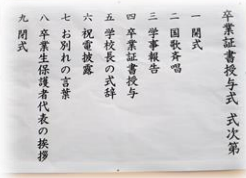 卒業証書授与式 式次第
一 開式
二 国歌斉唱
三 学事報告
四 卒業証書授与
五 学校長の式辞
六 祝電披露
七 お別れの言葉
八 卒業生保護者代表の挨拶
九 閉式